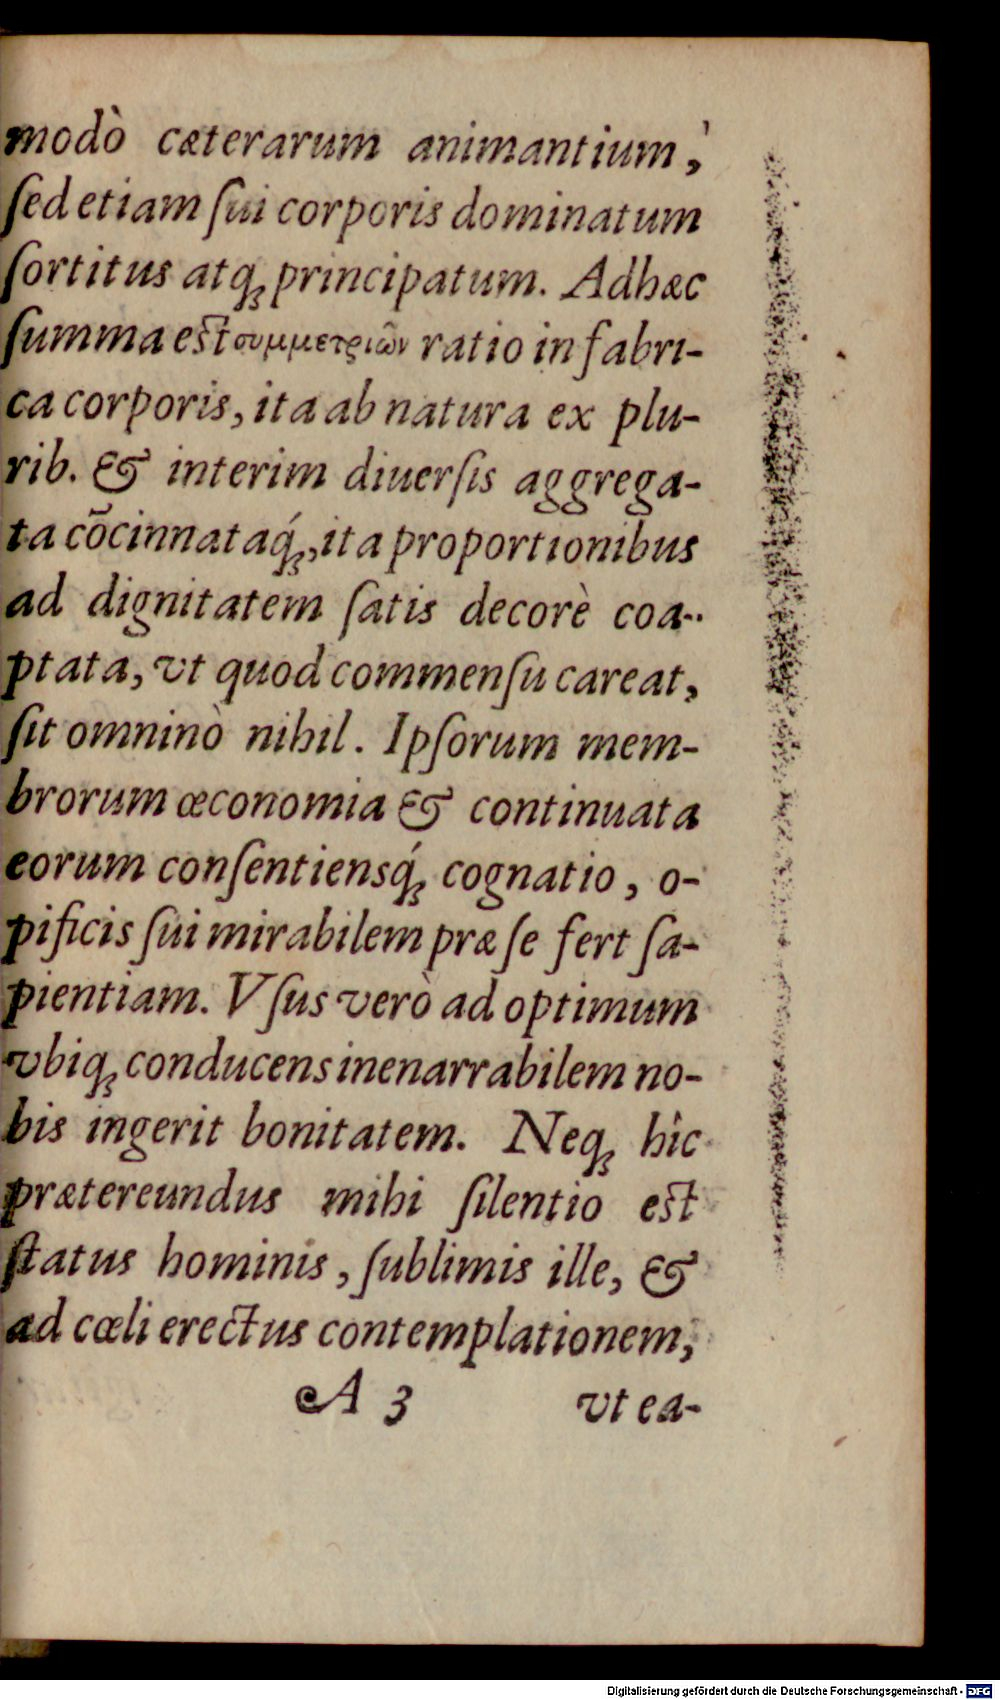 modò cæterarum animantium,
ſed etiam ſui corporis dominatum
ſortitus atq; principatum. Ad hæc
ſumma eſt συμμετριῶν ratio in fabri-
ca corporis, ita ab natura ex plu-
rib. & interim diuerſis aggrega-
ta cōcinnataq́;, ita proportionibus
ad dignitatem ſatis decorè coa-
ptata, vt quod commenſu careat,
ſit omninò nihil. Ipſorum mem-
brorum œconomia & continuata
eorum conſentiensq́; cognatio, o-
pificis ſui mirabilem præ ſe fert ſa-
pientiam. Vſus verò ad optimum
vbiq; conducens inenarrabilem no-
bis ingerit bonitatem. Neq; hîc
prætereundus mihi ſilentio eſt
ſtatus hominis, ſublimis ille, &
ad cœli erectus contemplationem,
A 3 vt ea-
Digitalisierung gefördert durch die Deutsche Forschungsgemeinschaft - DFG